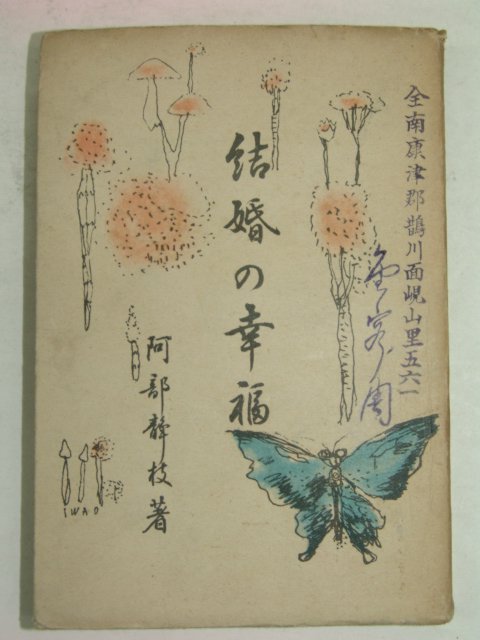 全南康津郡鵲川面峴山里五六一
結婚の幸福
阿部靜枝著
IWAO